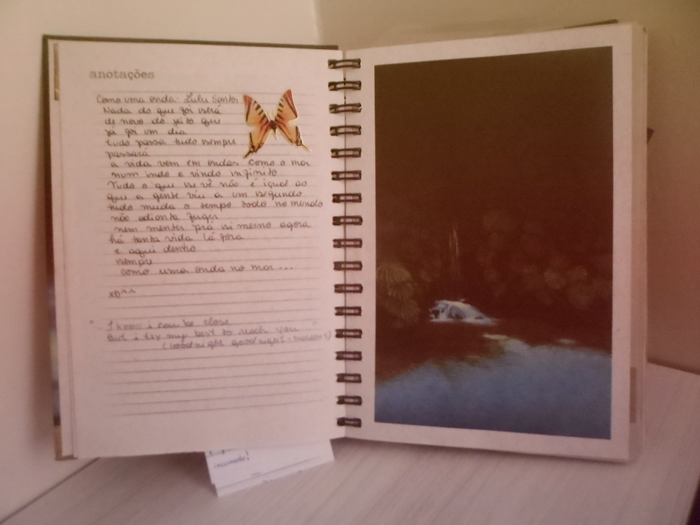 anotações
Como uma onda - Lulu Santos
Nada do que foi será
de novo do jeito que
já foi um dia
tudo passa tudo sempre
passará
a vida vem em ondas como o mar
num indo e vindo infinito
Tudo o que se vê não é igual ao
que a gente viu a um segundo
tudo muda o tempo todo no mundo
não adianta fugir
nem mentir pra si mesmo agora
há tanta vida lá fora
e aqui dentro
sempre
como uma onda no mar...
xD^^
" I know i can be close
But i try my best to reach you "
(Goodnight goodnight - maroon 5)